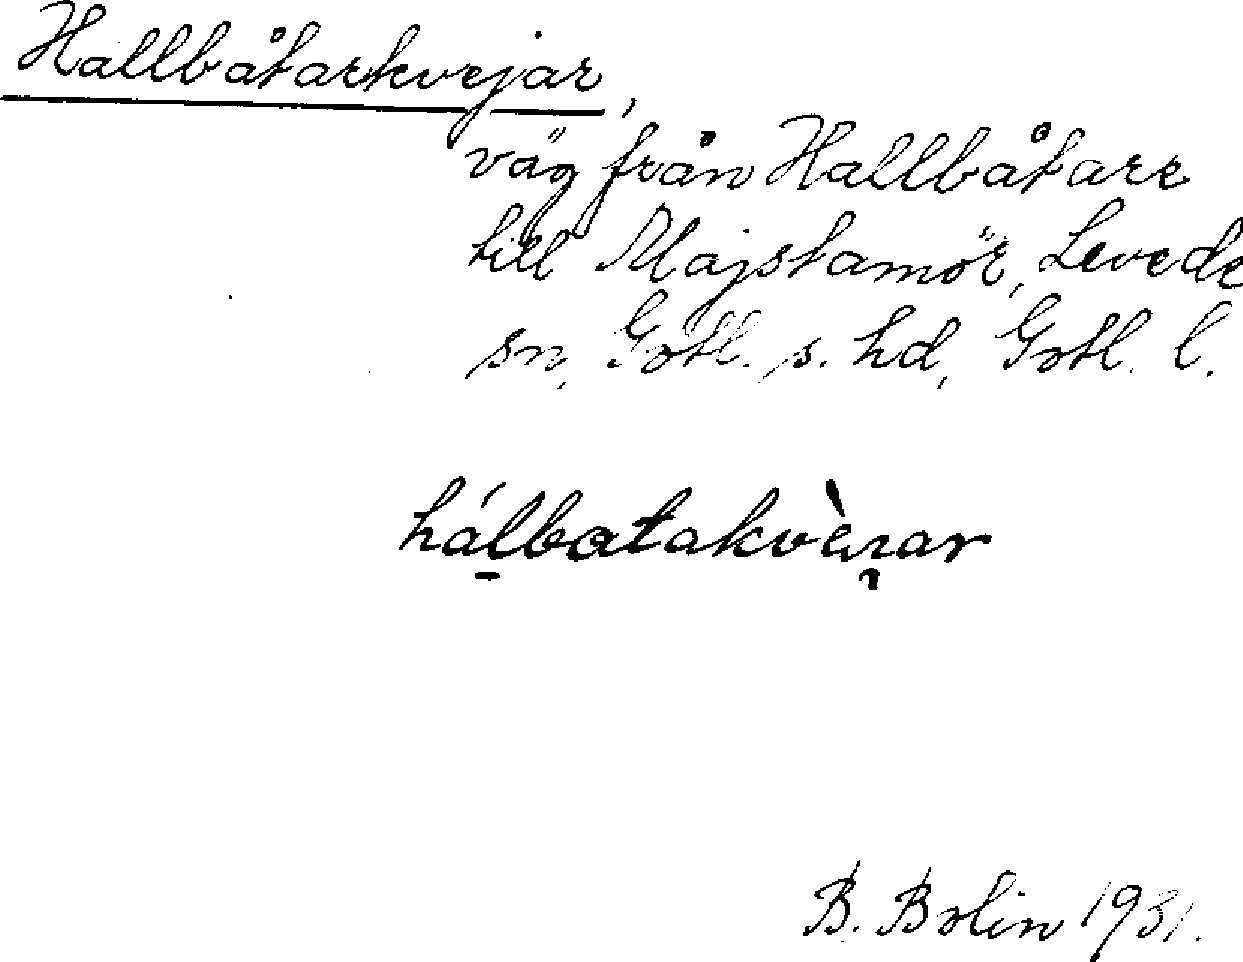 Hallbåtarkvejar,
väg från Hallbåtare
till Majstamör, Levede
sn, Gotl. s. hd, Gotl. l.
B. Bolin 1931.